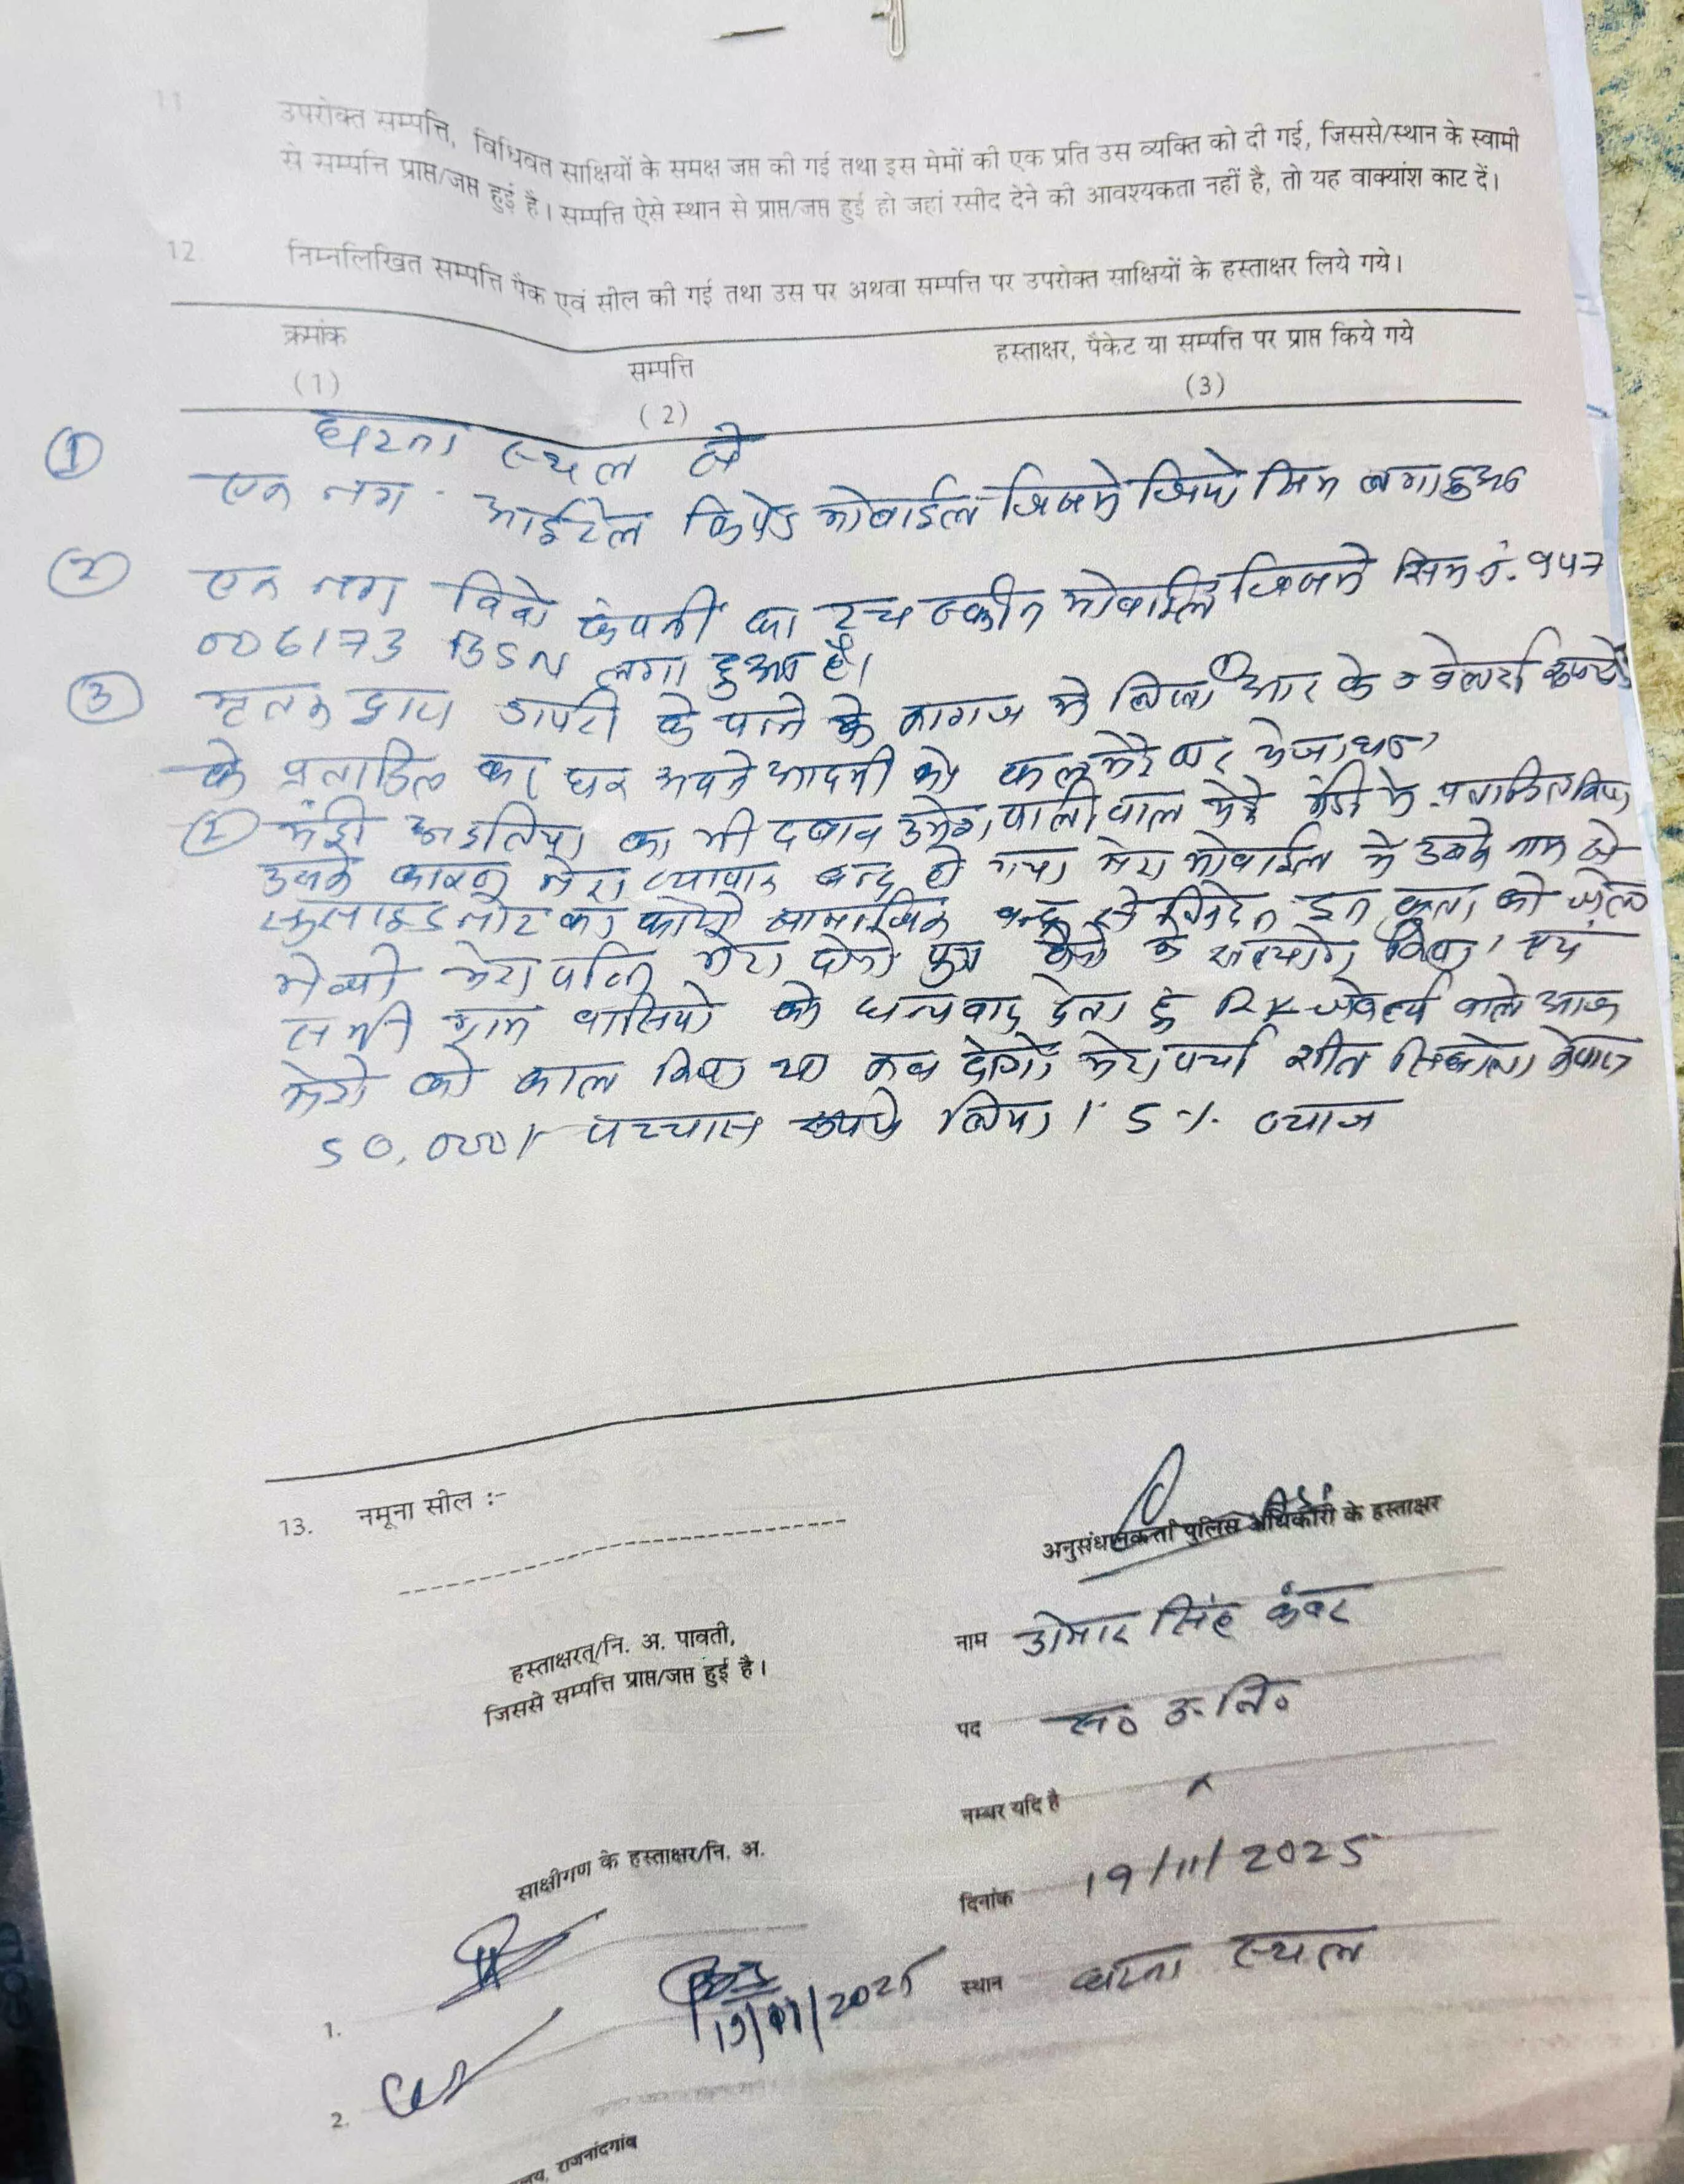 11 उपरोक्त सम्पत्ति, विधिवत साक्षियों के समक्ष जप्त की गई तथा इस मेमों की एक प्रति उस व्यक्ति को दी गई, जिससे/स्थान के स्वामी
से सम्पत्ति प्राप्त/जप्त हुई है। सम्पत्ति ऐसे स्थान से प्राप्त/जप्त हुई हो जहां रसीद देने की आवश्यकता नहीं है, तो यह वाक्यांश काट दें।
12. निम्नलिखित सम्पत्ति पैक एवं सील की गई तथा उस पर अथवा सम्पत्ति पर उपरोक्त साक्षियों के हस्ताक्षर लिये गये।
क्रमांक सम्पत्ति हस्ताक्षर, पैकेट या सम्पत्ति पर प्राप्त किये गये
(1) (2) (3)
घटना स्थल से
① एक नग आईटेल किपेड मोबाईल जिसमे जियो सिम लगा हुआ
② एक नग विवो कंपनी का टच स्क्रीन मोबाईल जिसमे सिम नं. 947
006173 BSN लगा हुआ है।
③ मृतक द्वारा डायरी के पन्ने के कागज मे लिखा ① आर के ज्वेलर्स रूपये
के प्रताडित का घर अपने आदमी को कल मेरे घर भेजा था
② मंडी अडतिया का भी दबाव उमेश पालीवाल मेरे मंडी मे प्रताडित किया
उसके कारण मेरा व्यापार बन्द हो गया मेरा मोबाईल मे उसके नाम से
सुसाइड नोट का कापी सामाजिक बन्धु से निवेदन इन को जेल
मेरा पत्नि मेरा दोनो पुत्र किया एवं
सभी ग्राम वासियो को धन्यवाद देता हूं RK ज्वेलर्स वाले आज
मेरो को काल किया था कब देगो मेरा पर्चा
50,000/- पच्चास रूपये लिया। 5%. ब्याज
13. नमूना सील :-
अनुसंधानकर्ता पुलिस अधिकारी के हस्ताक्षर
हस्ताक्षरत्/नि. अ. पावती,
जिससे सम्पत्ति प्राप्त/जप्त हुई है।
नाम उमेार सिंह कंवर
पद स० उ. नि०
नम्बर यदि है x
साक्षीगण के हस्ताक्षर/नि. अ.
दिनांक 19/11/2025
स्थान घटना स्थल
1. 19/11/2025
2.
राजनांदगांव
GOLD